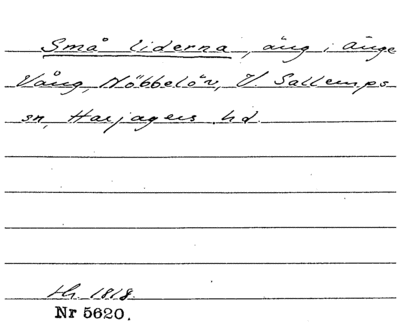 Små liderna, äng i Änge
Vång, Nöbbelöv, V. Sallerups
sn, Harjagers hd.
Hr. 1818.
Nr 5620.